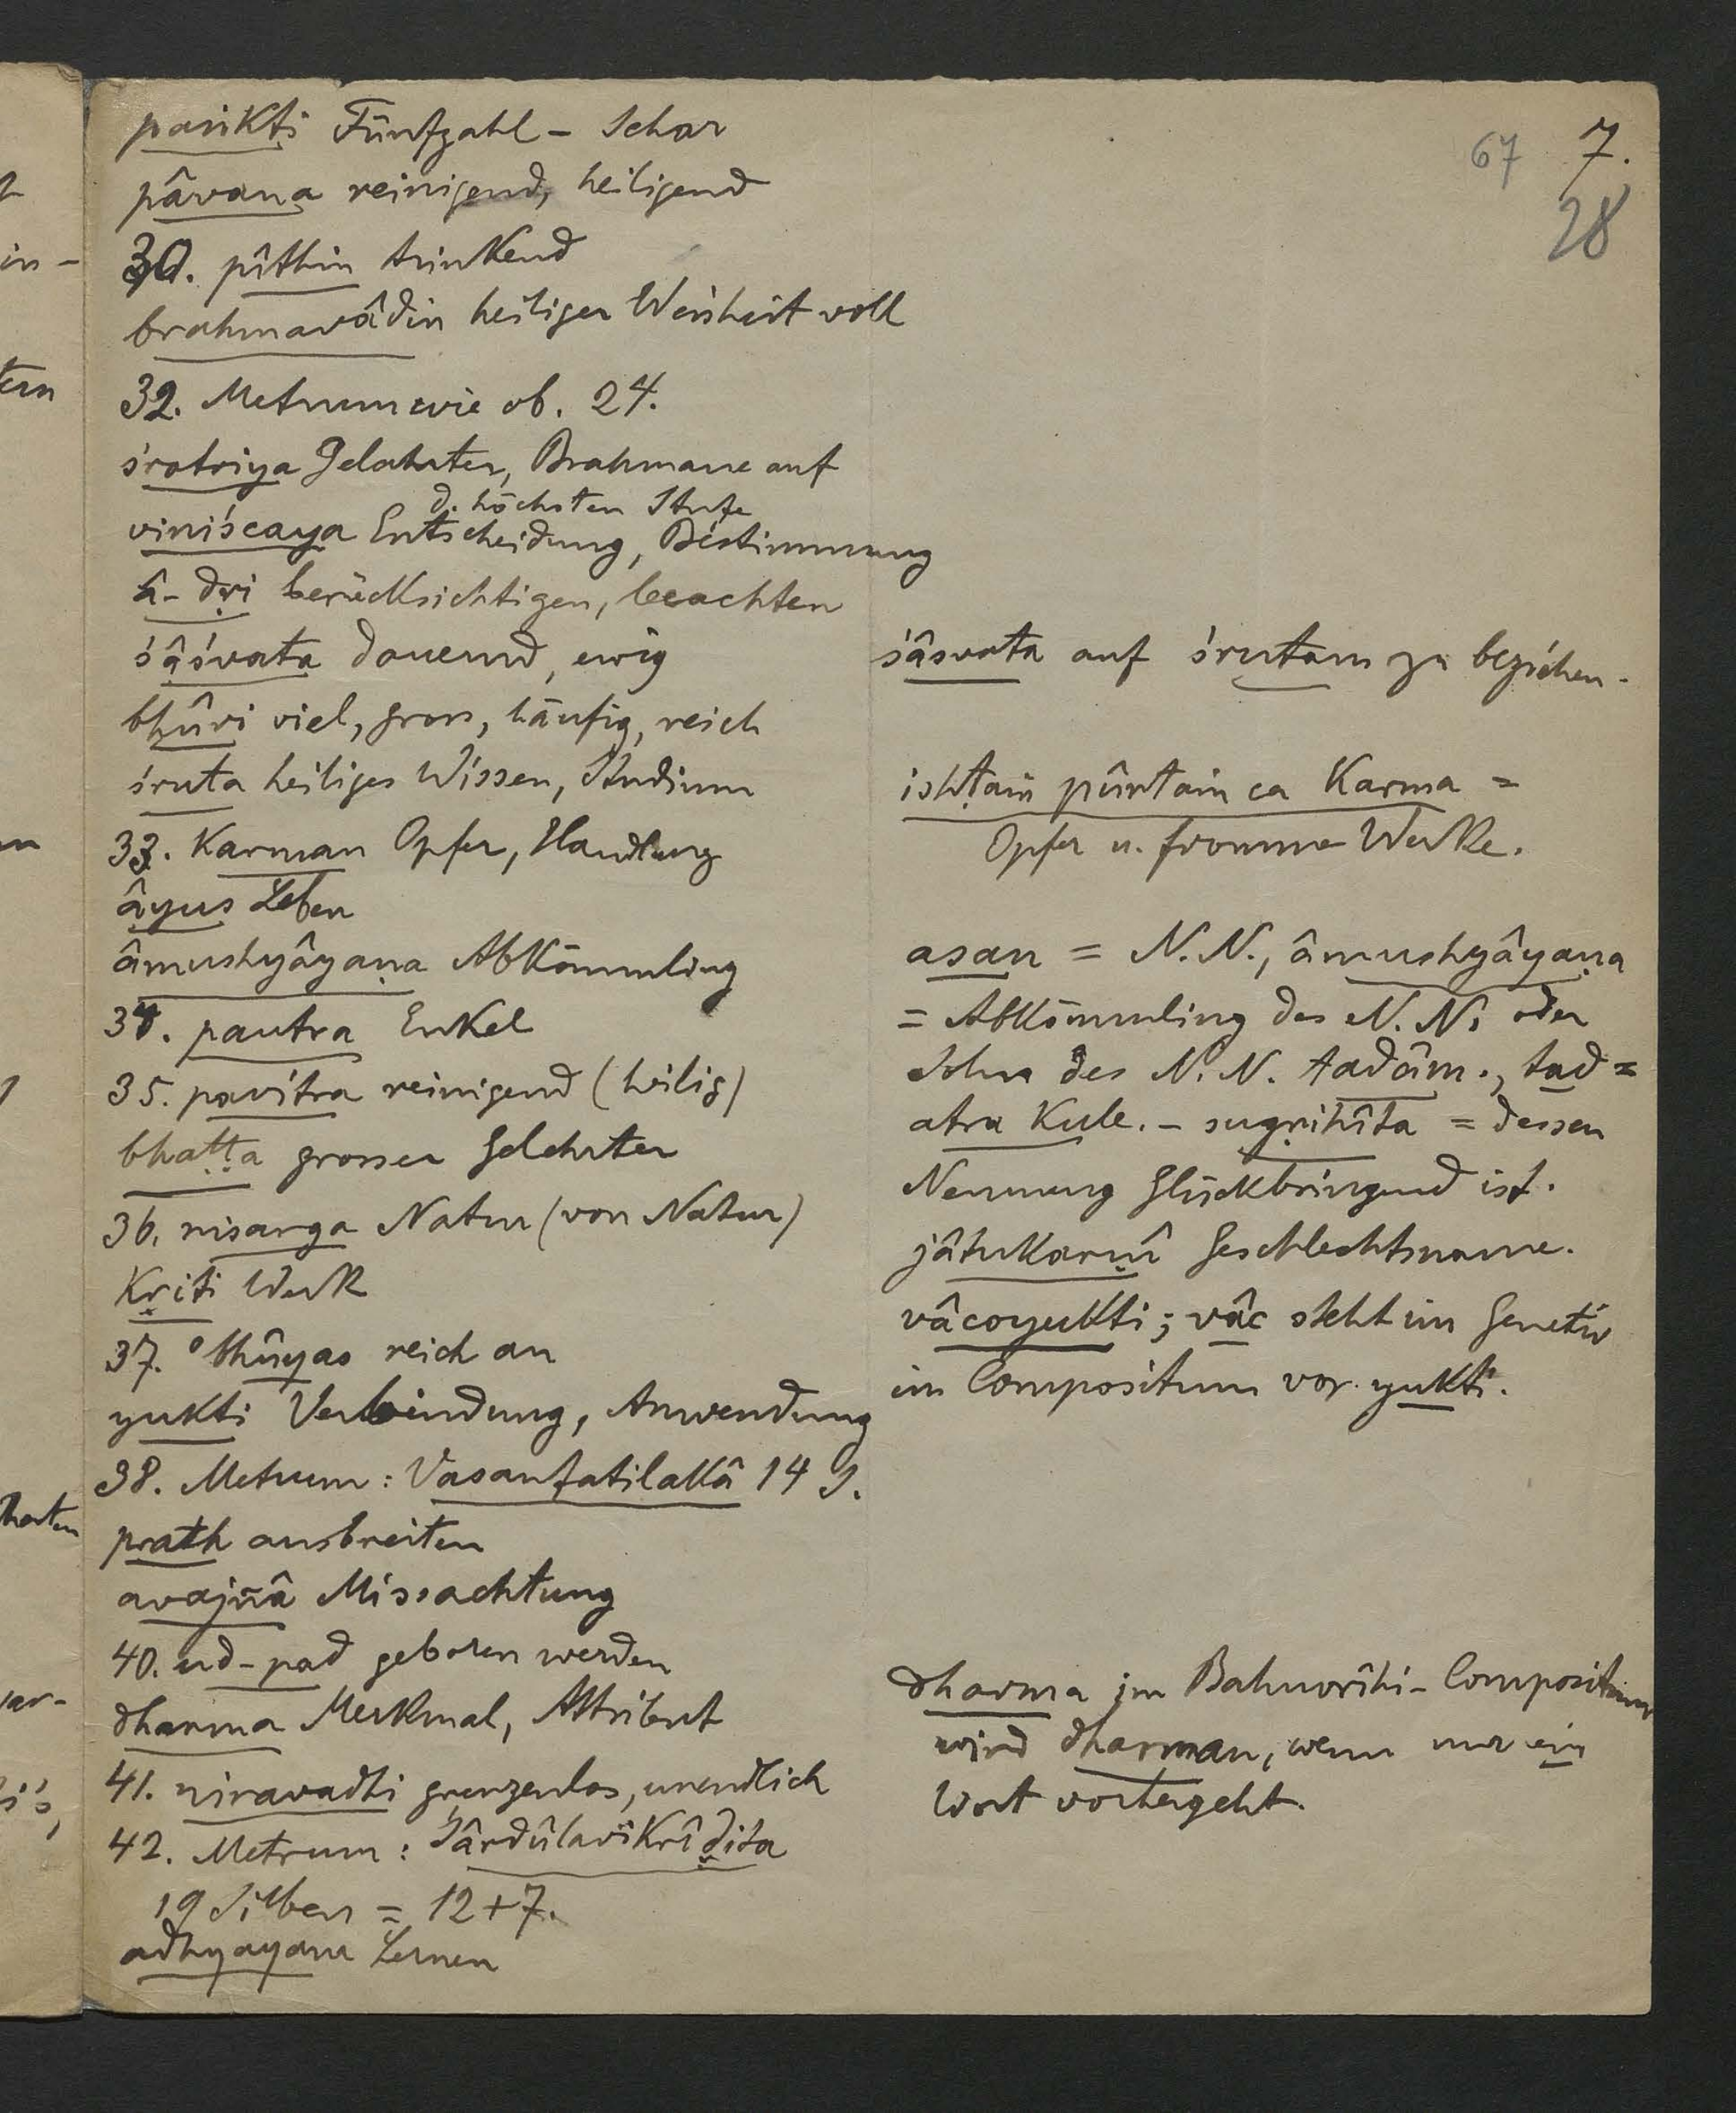 67 7.
28
paṅkti Fünfzahl – Schar
pâvana reinigend, heiligend
30. pîthin trinkend
brahmavâdin heiliger Weisheit voll
32. Metrum wie ob. 24.
śrotriya Gelehrter, Brahmane auf
d. höchsten Stufe
viniścaya Entscheidung, Bestimmung
â-dṛi berücksichtigen, beachten
śâśvata dauernd, ewig
bhûri viel, gross, häufig, reich
śruta heiliges Wissen, Studium
33. Karman Opfer, Handlung
âyus Leben
âmushyâyaṇa Abkömmling
34. pautra Enkel
35. pavitra reinigend (heilig)
bhaṭṭa grosser Gelehrter
36. nisarga Natur (von Natur)
Kṛiti Werk
37. °bhûyas reich an
yukti Verbindung, Anwendung
38. Metrum: Vasantatilakâ 14 S.
prath ausbreiten
avajñâ Missachtung
40. ud-pad geboren werden
dharma Merkmal, Attribut
41. niravadhi grenzenlos, unendlich
42. Metrum: Śârdûlavikrîḍita
19 Silben = 12+7.
adhyayana Lernen
śâsvata auf śrutam zu beziehen.
ishṭaṁ pûrtaṁ ca Karma =
Opfer u. fromme Werke.
asau = N.N., âmushyâyaṇa
= Abkömmling des N.N. oder
Sohn des N.N. tadâm., tad =
atra Kule. – sugṛihîta = dessen
Nennung glückbringend ist.
jâtukarṇî Geschlechtsname.
vâcoyukti; vâc steht im Genetiv
im Compositum vor yukti.
dharma im Bahuvrîhi-Compositum
wird dharman, wenn nur ein
Wort vorhergeht.